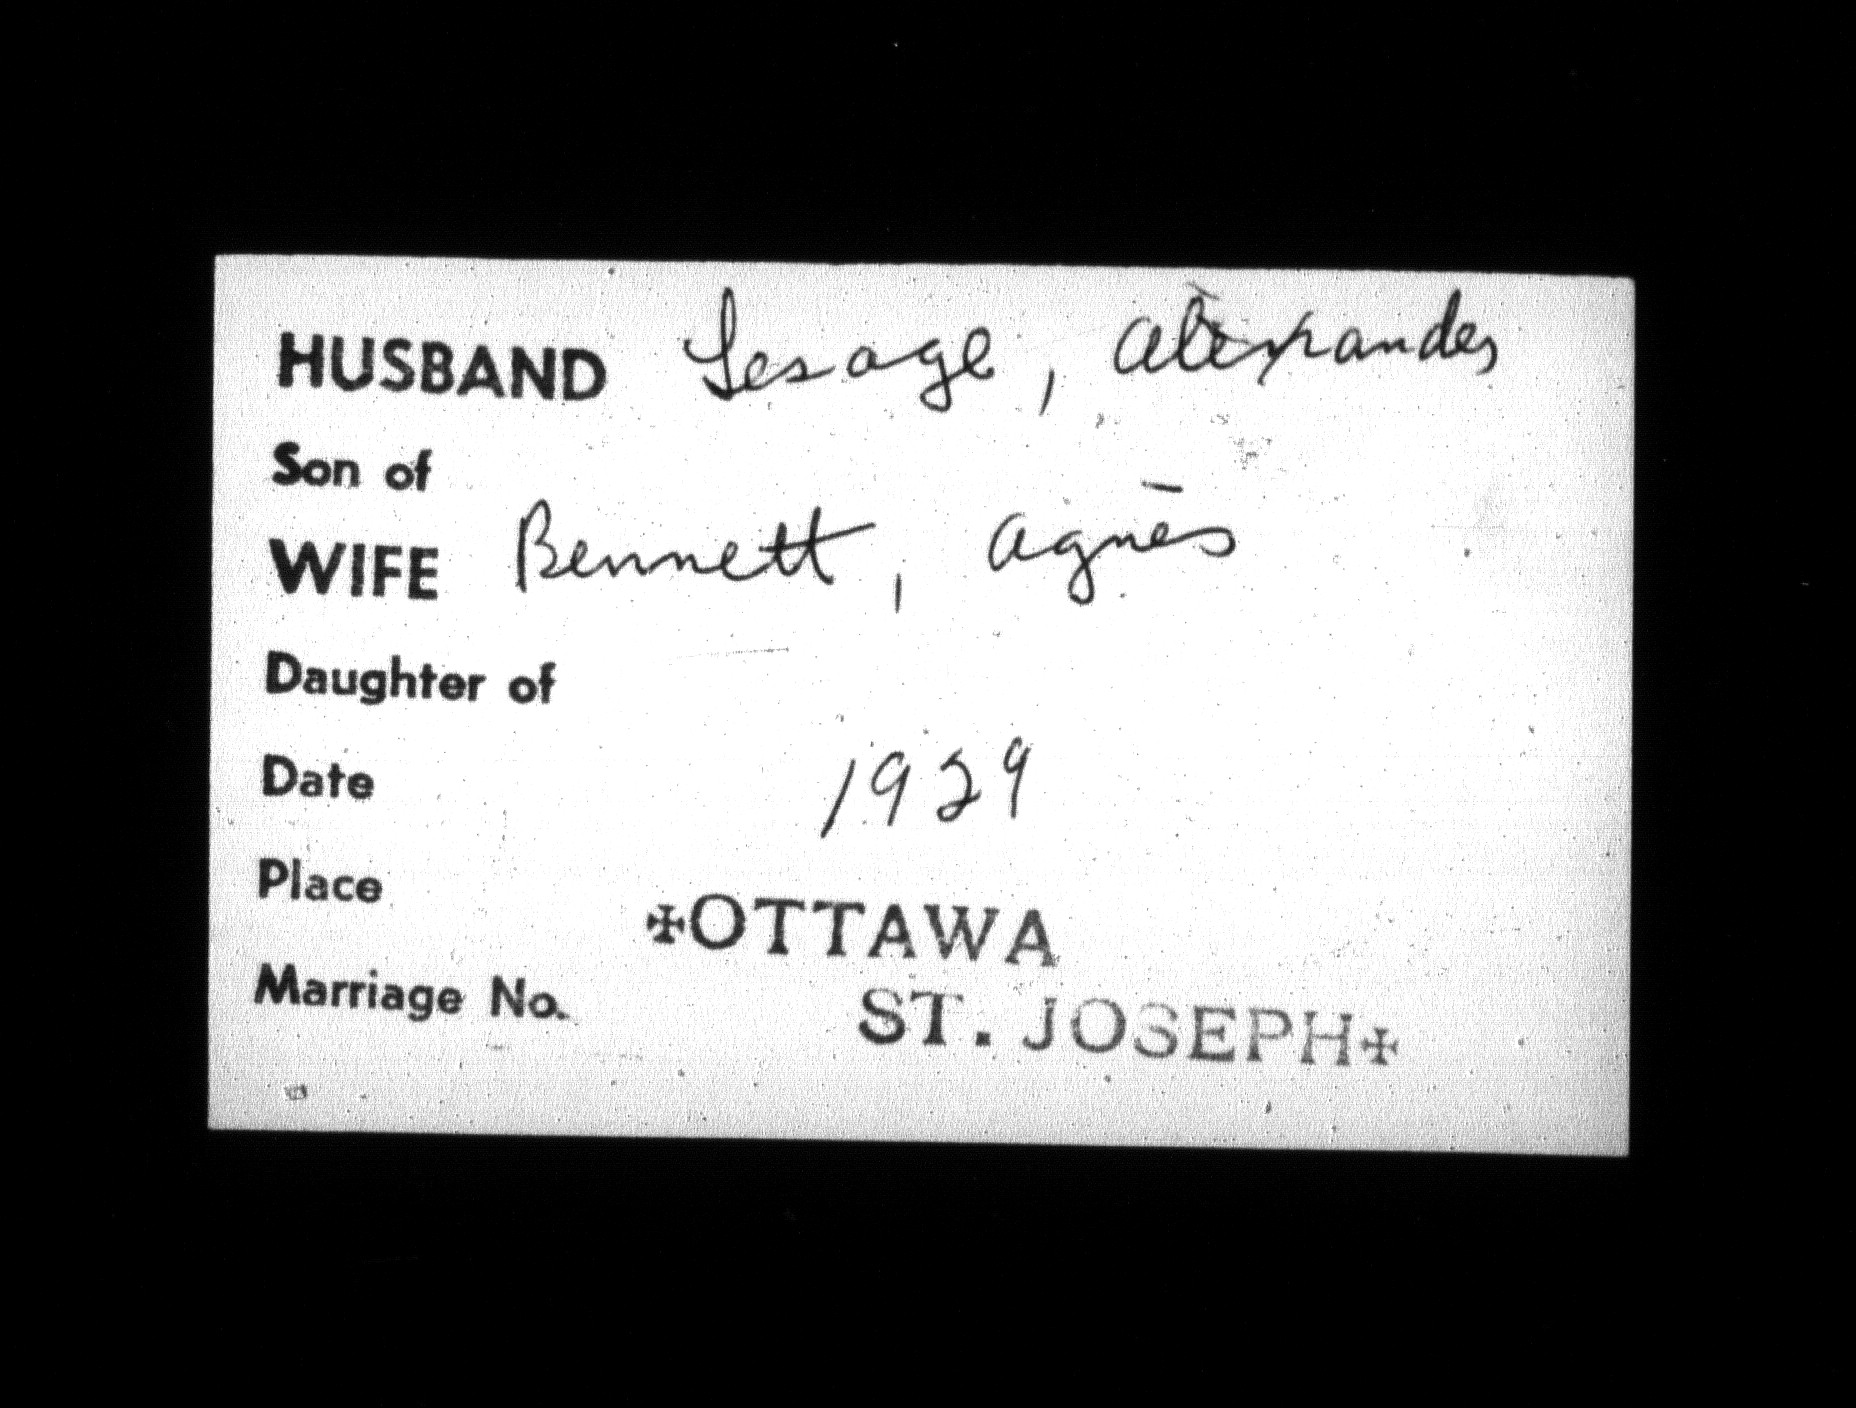 HUSBAND Lesage, Alexander
Son of
WIFE Bennett, Agnès
Daughter of
Date 1929
Place
✠OTTAWA
Marriage No.
ST. JOSEPH✠